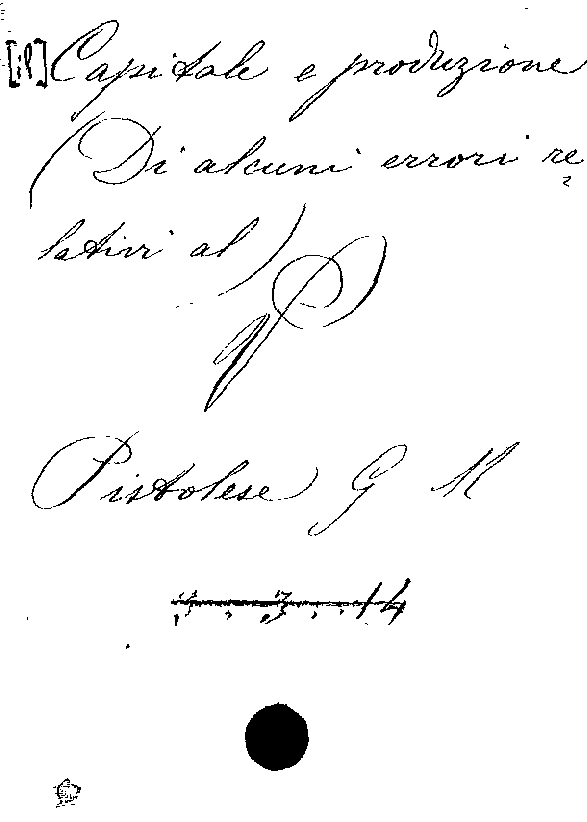 [il] Capitale e produzione
(Di alcuni errori re
lativi al)
Pistolese G M